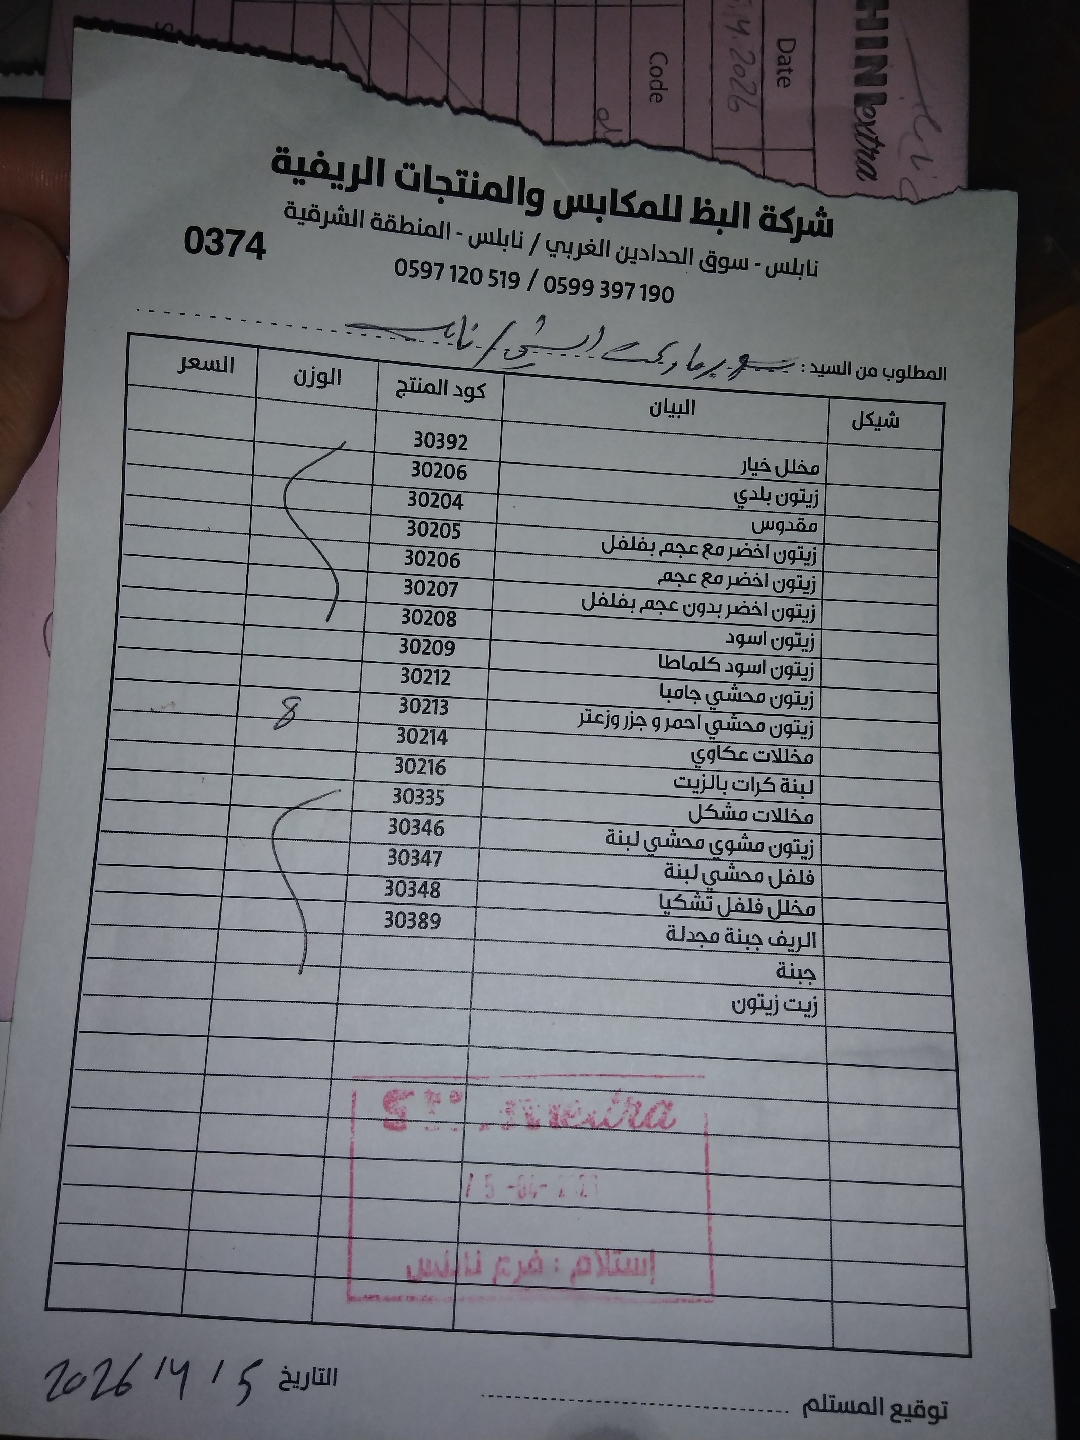 HINI extra
Date
5.4.2026
Code
شركة البظ للمكابس والمنتجات الريفية
نابلس - سوق الحدادين الغربي / نابلس - المنطقة الشرقية
0374
0597 120 519 / 0599 397 190
المطلوب من السيد : سوبرماركت الشني / نابلس
شيكل البيان كود المنتج الوزن السعر
مخلل خيار 30392
زيتون بلدي 30206
مقدوس 30204
زيتون اخضر مع عجم بفلفل 30205
زيتون اخضر مع عجم 30206
زيتون اخضر بدون عجم بفلفل 30207
زيتون اسود 30208
زيتون اسود كلماطا 30209
زيتون محشي جامبا 30212
زيتون محشي احمر و جزر وزعتر 30213 8
مخللات عكاوي 30214
لبنة كرات بالزيت 30216
مخللات مشكل 30335
زيتون مشوي محشي لبنة 30346
فلفل محشي لبنة 30347
مخلل فلفل تشكيا 30348
الريف جبنة مجدلة 30389
جبنة
زيت زيتون
إستلام : فرع نابلس
التاريخ 5 / 4 / 2026
توقيع المستلم